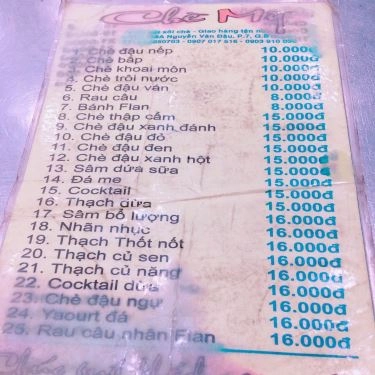 Chè Mợ
xôi chè - Giao hàng tận n
A Nguyễn Văn Đậu, P.7, Q.B
0703 - 0907 017 516 - 0903 910 0
Chè đậu nếp 10.000đ
2. Chè bắp 10.000đ
3. Chè khoai môn 10.000đ
4. Chè trôi nước 10.000đ
5. Chè đậu ván 10.000đ
6. Rau câu 8.000đ
7. Bánh Flan 8.000đ
8. Chè thập cẩm 15.000đ
9. Chè đậu xanh đánh 15.000đ
10. Chè đậu đỏ 15.000đ
11. Chè đậu đen 15.000đ
12. Chè đậu xanh hột 15.000đ
13. Sâm dứa sữa 15.000đ
14. Đá me 15.000đ
15. Cocktail 15.000đ
16. Thạch dừa 15.000đ
17. Sâm bổ lượng 16.000đ
18. Nhãn nhục 16.000đ
19. Thạch Thốt nốt 16.000đ
20. Thạch củ sen 16.000đ
21. Thạch củ năng 16.000đ
22. Cocktail dừa 16.000đ
23. Chè đậu ngự 16.000đ
24. Yaourt đá 16.000đ
25. Rau câu nhân Flan 16.000đ